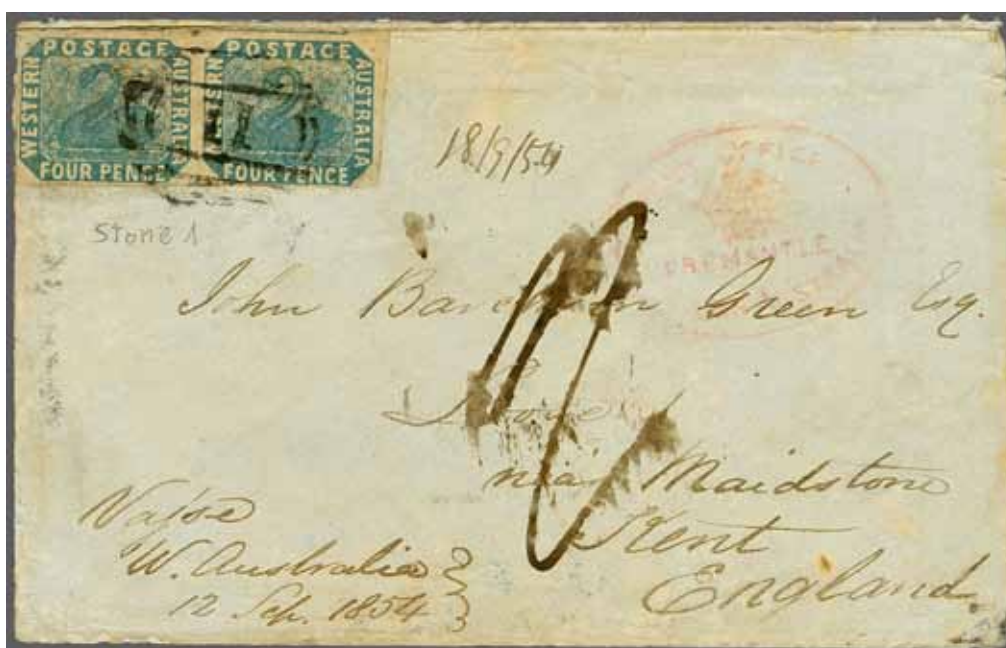 POSTAGE
WESTERN
AUSTRALIA
FOUR PENCE
POSTAGE
AUSTRALIA
FOUR PENCE
18/9/54
OFFICE
FREMANTLE
Stone 1
John Green Esq.
near Maidstone
Kent
England.
Vasse
W. Australia
12 Sep. 1854